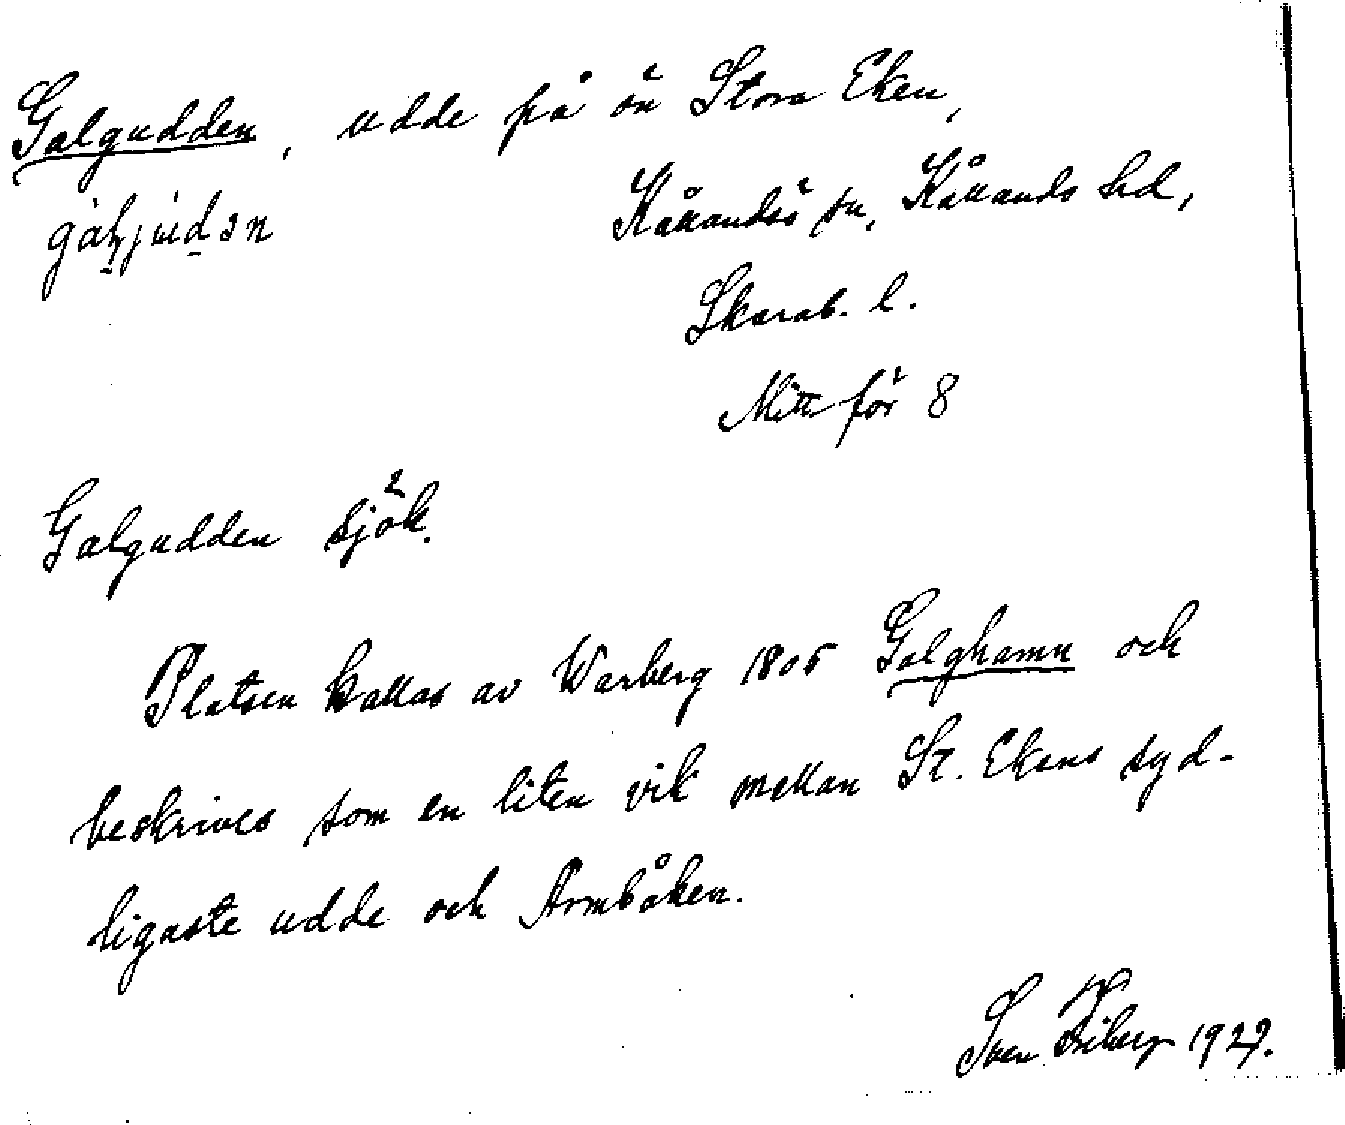 Galgudden, udde på ön Stora Eken,
Kållandsö sn, Kållands hd,
Skarab. l.
Mitt för 8
Galgudden sjök.
Platsen kallas av Warberg 1805 Galghamn och
beskrives som en liten vik mellan St. Ekens syd-
ligaste udde och Armbåken.
Sven Friberg 1927.